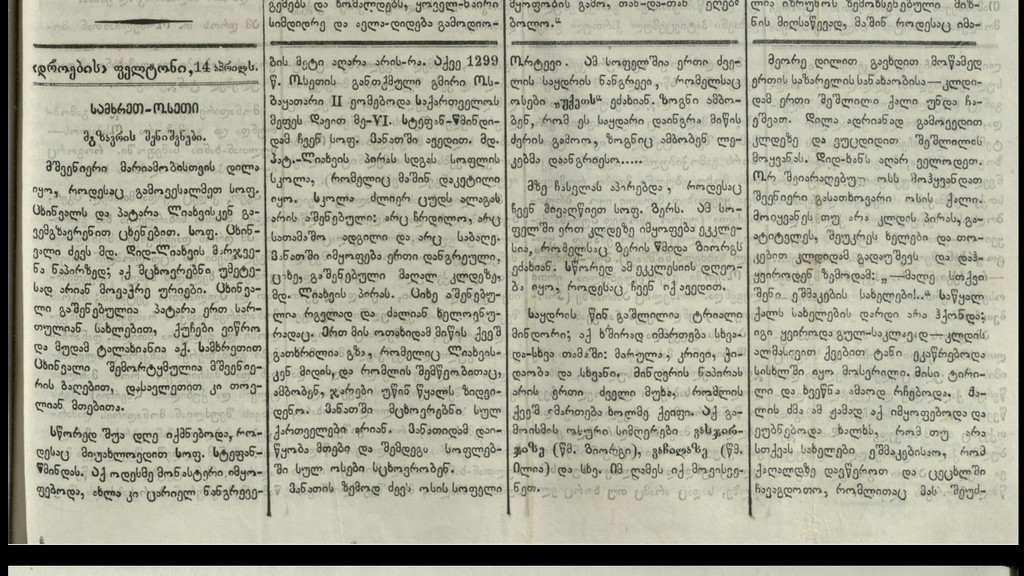 (დროების) ფელტონი, 14 აპრილს.
სამხრეთ-ოსეთი
მგზავრის შენიშვნები.
მშვენიერი მარიამობისთვის დილა
იყო, როდესაც გამოვესალმეთ სოფ.
ცხინვალს და პატარა ლიახვისკენ გა-
ვემგზავრენით ცხენებით. სოფ. ცხინ-
ვალი ძევს მდ. დიდ-ლიახვის მარჯვე-
ნა ნაპირზედ; აქ მცხოვრებნი უმეტე-
სად არიან მოვაჭრე ურიები. ცხინვა-
ლი გაშენებულია პატარა ერთ სარ-
თულიან სახლებით, ქუჩები ვიწრო
და მუდამ ტალახიანია აქ. სამხრეთით
ცხინვალი შემორტყმულია მშვენიე-
რის ბაღებით, დასავლეთით კი თოვ-
ლიან მთებითა.
სწორედ შუა დღე იქმნებოდა, რო-
დესაც მიუახლოვედით სოფ. სტეფან-
წმინდას. აქ ოდესმე მონასტერი იმყო-
ფებოდა, ახლა კი ცარიელ ნანგრევე-
გემებს და ხომალდებს, ყოველ-ნაირი
სიმდიდრე და ავლა-დიდება გამოდიო-
ბის მეტი აღარა არის-რა. აქვე 1299
წ. ოსეთის განთქმული გმირი ოს-
ბაყათარი II ეომებოდა საქართველოს
მეფეს დავით მე-VI. სტეფან-წმინდი-
დამ ჩვენ სოფ. მანათში ავედით. მდ.
პატ.-ლიახვის პირას სდგას სოფლის
სკოლა, რომელიც მაშინ დაკეტილი
იყო. სკოლა ძლიერ ცუდს ალაგას
არის აშენებული: არც ჩრდილო, არც
სათამაშო ადგილი და არც საბაღე.
მანათში იმყოფება ერთი დანგრეული,
ციხე, გაშენებული მაღალ კლდეზე,
მდ. ლიახვის პირას. ციხე აშენებუ-
ლია რგვლად და ძალიან ხელოვნუ-
რადაც. ერთ მის ოთახიდამ მიწის ქვეშ
გათხრილია გზა, რომელიც ლიახვის-
კენ მიდის, და რომლის შემწეობითაც,
ამბობენ, ჯარები უწინ წყალს ზიდვი-
დენო. მანათში მცხოვრებნი სულ
ქართველები არიან. მანათიდამ დაი-
წყობა მთები და შემდეგს სოფლებ-
ში სულ ოსები სცხოვრობენ.
მანათის ზემოდ ძევს ოსის სოფელი
მყოფობის გამო, თან-და-თან ელება
ბოლო.“
ორტევი. ამ სოფელშია ერთი ძვე-
ლის საყდარის ნანგრევი, რომელსაც
ოსები „უქეთს“ ეძახიან. ზოგნი ამბო-
ბენ, რომ ეს საყდარი დაინგრა მიწის
ძვრის გამოო, ზოგნიც ამბობენ ლე-
კებმა დაანგრიესო.....
მზე ჩასვლას აპირებდა, როდესაც
ჩვენ მივაღწიეთ სოფ. ბერს. ამ სო-
ფელში ერთ კლდეზე იმყოფება ეკკლე-
სია, რომელსაც ბერის წმიდა გიორგს
ეძახიან. სწორედ ამ ეკკლესიის დღეო-
ბა იყო, როდესაც ჩვენ იქ ავედით.
საყდრის წინ გაშლილია ტრიალი
მინდორი; აქ ხშირად იმართება სხვა-
და-სხვა თამაში: მარულა, კრივი, ჭი-
დაობა და სხვანი. მინდვრის ნაპირას
არის ერთი ძველი მუხა, რომლის
ქვეშ იმართება ხოლმე ქეიფი. აქ გა-
მოისმის ოსური სიმღერები
(წმ. გიორგი), (წმ.
ილია) და სხვ. იმ ღამეს იქ მოვისვე-
ნეთ.
ლია იზრუნოს ზემოხსენებული მიზ-
ნის მიღსაწევად, მაშინ როდესაც იმა-
მეორე დილით გავხდით მოწამედ
ერთის საზარელის სანახაობისა—კლდი-
დამ ერთი შეშლილი ქალი უნდა ჩა-
ეშვათ. დილა ადრიანად გამოვედით
კლდეზე და ვუცდიდით შეშლილის
მოყვანას. დიდ-ხანს აღარ გველოდეთ.
ორ შეიარაღებულ ოსს მოჰყვანდათ
მშვენიერი გასათხოვარი ოსის ქალი.
მოიყვანეს თუ არა კლდის პირას, გა-
ატიტვლეს, შეუკრეს ხელები და თო-
კებით კლდიდამ გადაუშვეს და დაჰ-
ყვიროდენ ზემოდამ: „—მალე სთქვი
შენი ეშმაკების სახელები!..“ საწყალ
ქალს სახელების დარდი არა ჰქონდა;
იგი ყვიროდა გულ-საკლავად—კლდის
ალმასივით ქვებით ტანი ეკაწრებოდა
სისხლში იყო მოსვრილი. მისი ტირი-
ლი და ხვეწნა ამაოდ რჩებოდა. ქა-
ლის ძმა ამ ჟამად აქ იმყოფებოდა და
ეუბნებოდა ხალხს, რომ თუ არა
სთქვას სახელები ეშმაკებისაო, რომ
ქაღალდზე დავწეროთ და ცეცხლში
ჩავაგდოთო, რომლითაც მას შეუძ-